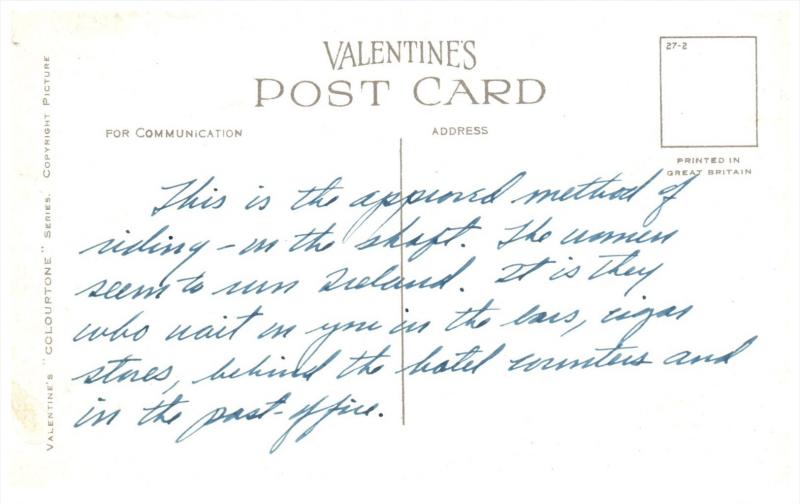 VALENTINE'S
POST CARD
27-2
FOR COMMUNICATION
ADDRESS
PRINTED IN
GREAT BRITAIN
This is the approved method of
riding - on the shaft. The women
seem to run Ireland. It is they
who wait on you in the bars, cigar
stores, behind the hotel counters and
in the post-office.
VALENTINE'S "COLOURTONE" SERIES. COPYRIGHT PICTURE